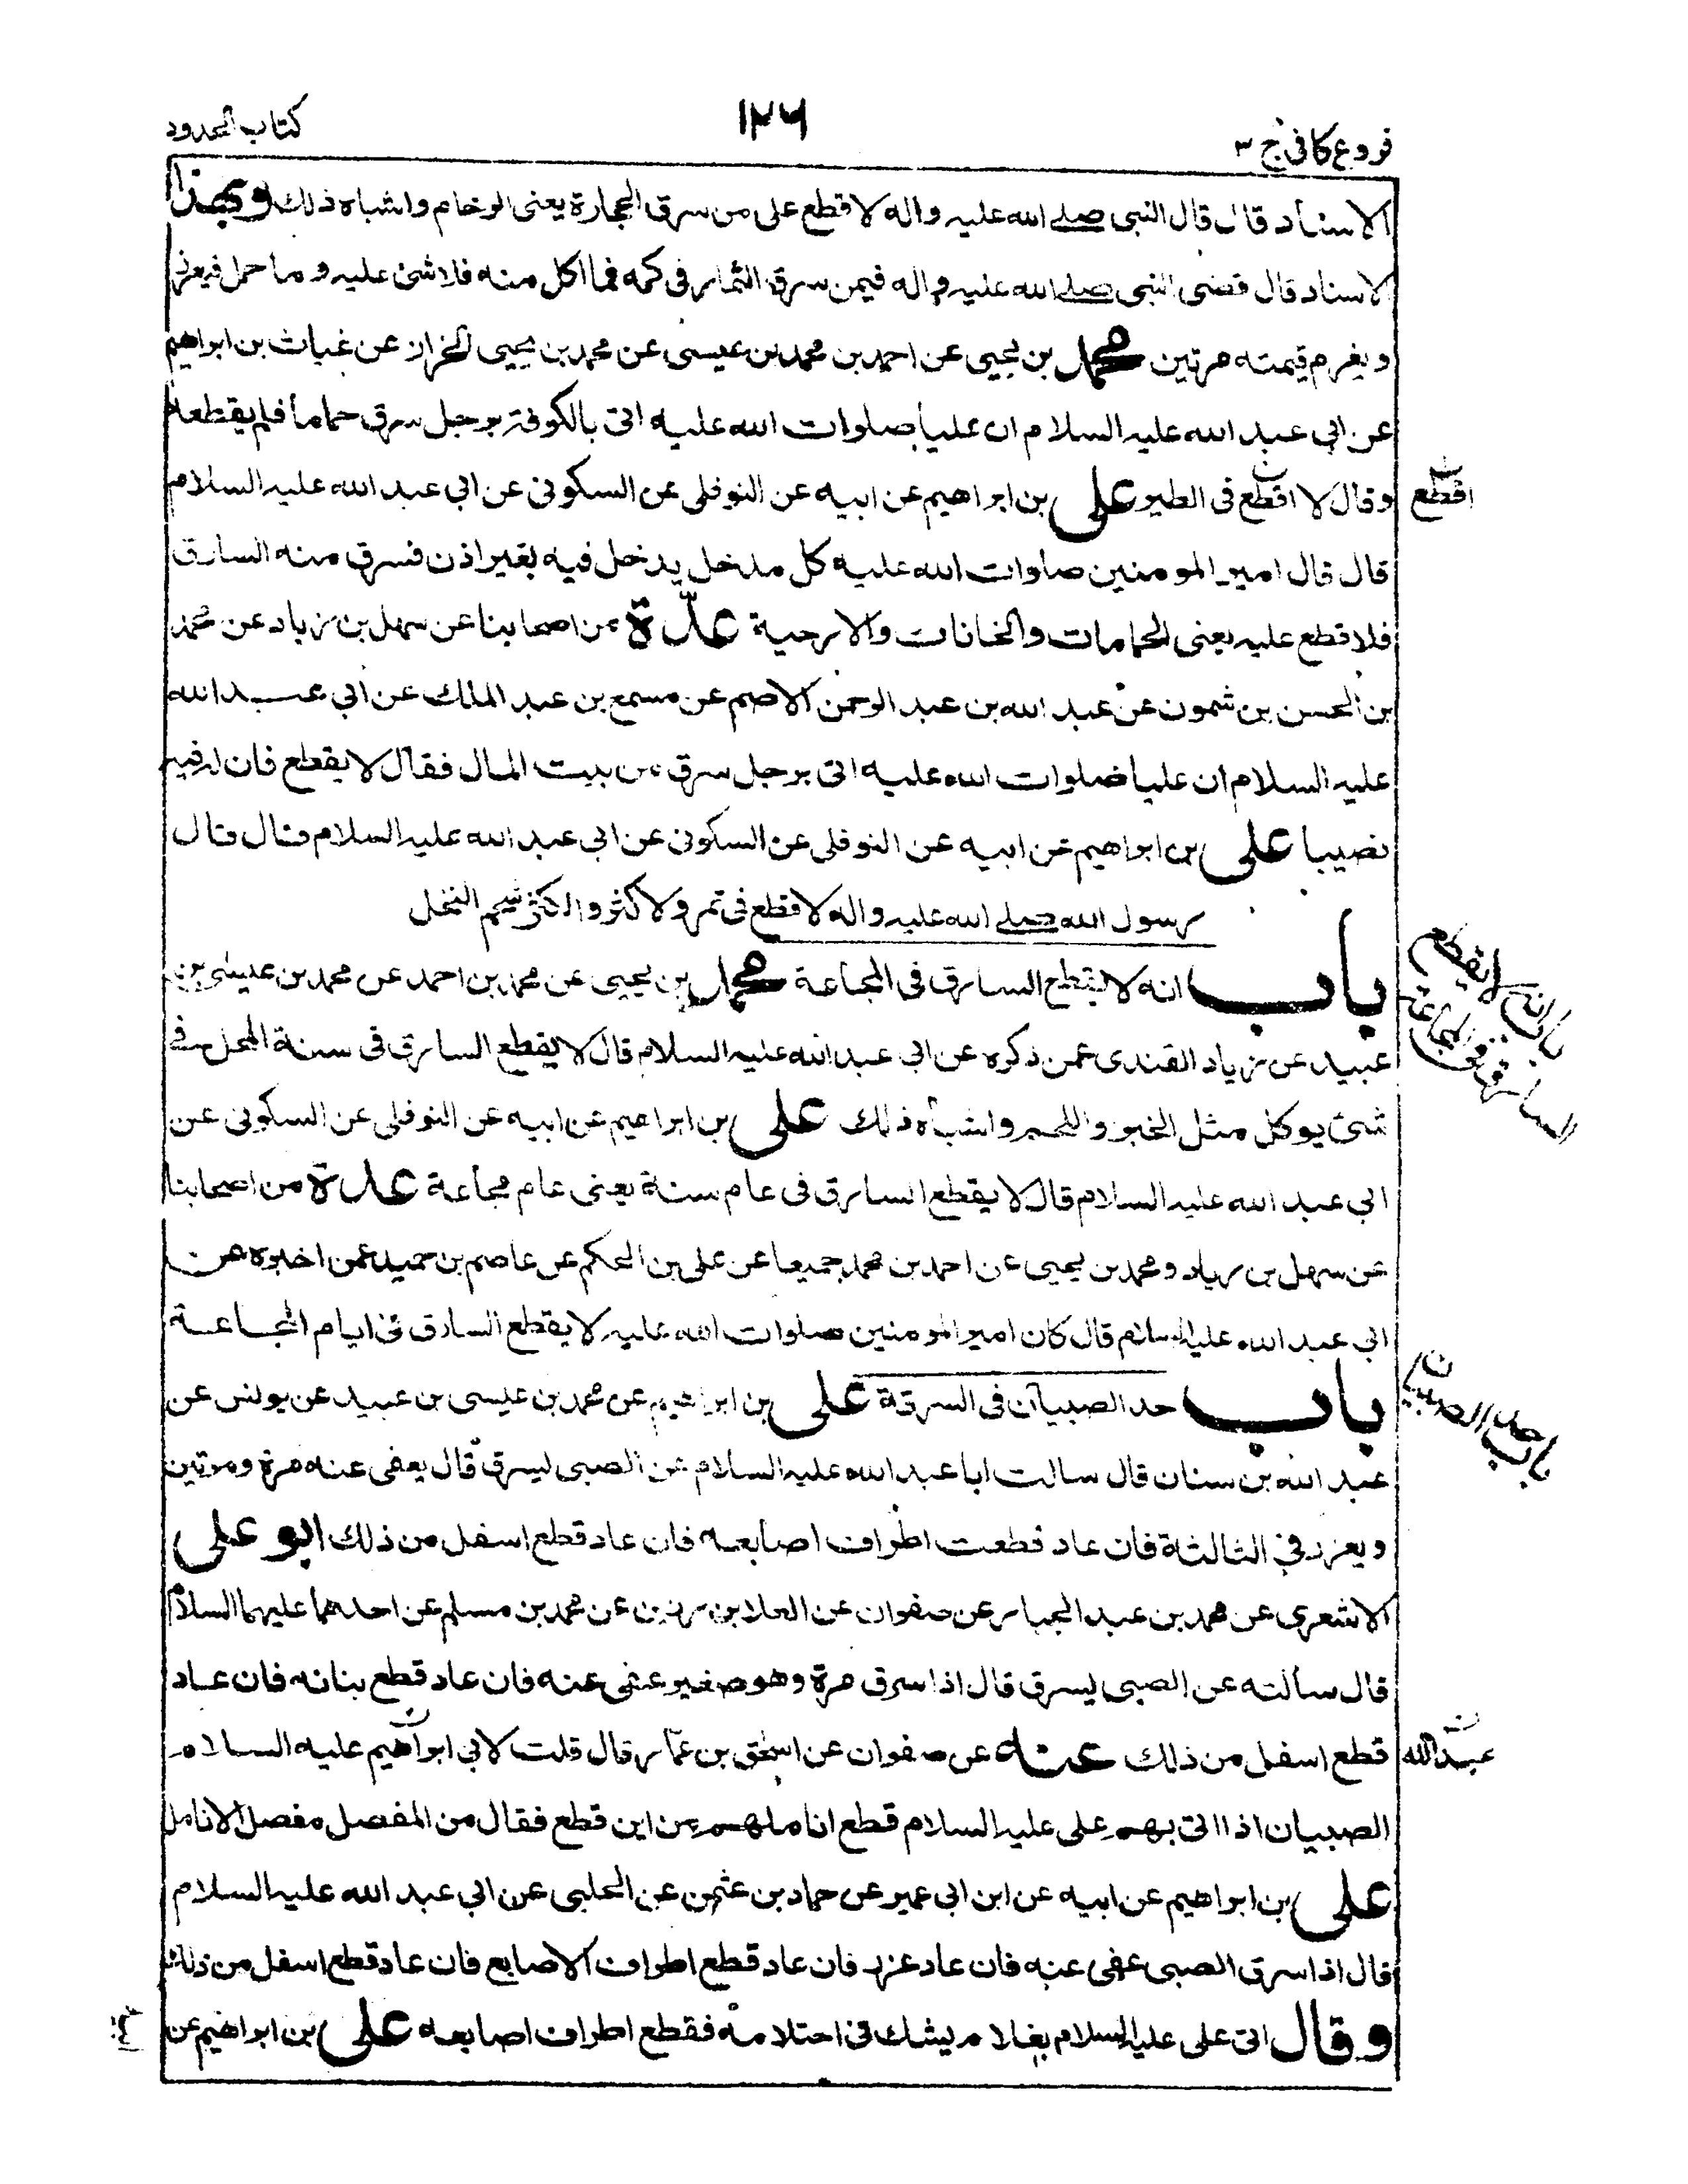 فروع كافى ج ٣
١٢٦
كتاب الحدود
الاسناد قال قال النبى صلے الله عليه واله لا قطع على من سرق الحجارة يعنى الرخام واشباه ذلك وبهذا
الاسناد قال قضى النبى صلے الله عليه واله فيمن سرق الثمار فى كمه فما اكل منه فلا شئ عليه وما حمل فيعزر
ويغرم قيمته مرتين محمد بن يحيى عن احمد بن محمد بن عيسى عن محمد بن يحيى الخزاز عن غياث بن ابراهيم
عن ابى عبد الله عليه السلام ان عليا صلوات الله عليه اتى بالكوفة برجل سرق حماما فلم يقطعه
وقال لا اقطع فى الطير على بن ابراهيم عن ابيه عن النوفلى عن السكونى عن ابى عبد الله عليه السلام
اقطع
قال قال امير المومنين صلوات الله عليه كل مدخل يدخل فيه بغير اذن فسرق منه السارق
فلا قطع عليه يعنى الحمامات والخانات والارحية عدّة من اصحابنا عن سهل بن زياد عن محمد
بن الحسن بن شمون عن عبد الله بن عبد الرحمن الاصم عن مسمع بن عبد الملك عن ابى عبد الله
عليه السلام ان عليا صلوات الله عليه اتى برجل سرق من بيت المال فقال لا يقطع فان له فيه
نصيبا على بن ابراهيم عن ابيه عن النوفلى عن السكونى عن ابى عبد الله عليه السلام قال قال
رسول الله صلے الله عليه واله لا قطع فى ثمر ولا كثر والكثر شحم النخل
باب انه لا يقطع السارق فى المجاعة محمد بن يحيى عن محمد بن احمد عن محمد بن عيسى بن
باب انه لا يقطع
السارق فى المجاعة
عبيد عن زياد القندى عمن ذكره عن ابى عبد الله عليه السلام قال لا يقطع السارق فى سنة المحل فے
شئ يوكل مثل الخبز واللحم واشباه ذلك على بن ابراهيم عن ابيه عن النوفلى عن السكونى عن
ابى عبد الله عليه السلام قال لا يقطع السارق فى عام سنة يعنى عام مجاعة عدة من اصحابنا
عن سهل بن زياد ومحمد بن يحيى عن احمد بن محمد جميعا عن على بن الحكم عن عاصم بن حميد عمن اخبره عن
ابى عبد الله عليه السلام قال كان امير المومنين صلوات الله عليه لا يقطع السارق فى ايام المجاعة
باب حد الصبيان فى السرقة على بن ابراهيم عن محمد بن عيسى بن عبيد عن يونس عن
باب حد الصبيان
عبد الله بن سنان قال سالت ابا عبد الله عليه السلام عن الصبى يسرق قال يعفى عنه مرة ومرتين
ويعزر فى الثالثة فان عاد قطعت اطراف اصابعه فان عاد قطع اسفل من ذلك ابو على
الاشعرى عن محمد بن عبد الجبار عن صفوان عن العلا بن رزين عن محمد بن مسلم عن احدهما عليهما السلام
قال سألته عن الصبى يسرق قال اذا سرق مرة وهو صغير عفى عنه فان عاد قطع بنانه فان عاد
قطع اسفل من ذلك عنه عن صفوان عن اسحق بن عمّار قال قلت لابى ابراهيم عليه السلام
عبد الله
الصبيان اذا اتى بهم على عليه السلام قطع اناملهم من اين قطع فقال من المفصل مفصل الانامل
على بن ابراهيم عن ابيه عن ابن ابى عمير عن حماد بن عثمن عن الحلبى عن ابى عبد الله عليه السلام
قال اذا سرق الصبى عفى عنه فان عاد عزر فان عاد قطع اطراف الاصابع فان عاد قطع اسفل من ذلك
وقال اتى على عليه السلام بغلام يشك فى احتلامه فقطع اطراف اصابعه على بن ابراهيم عن